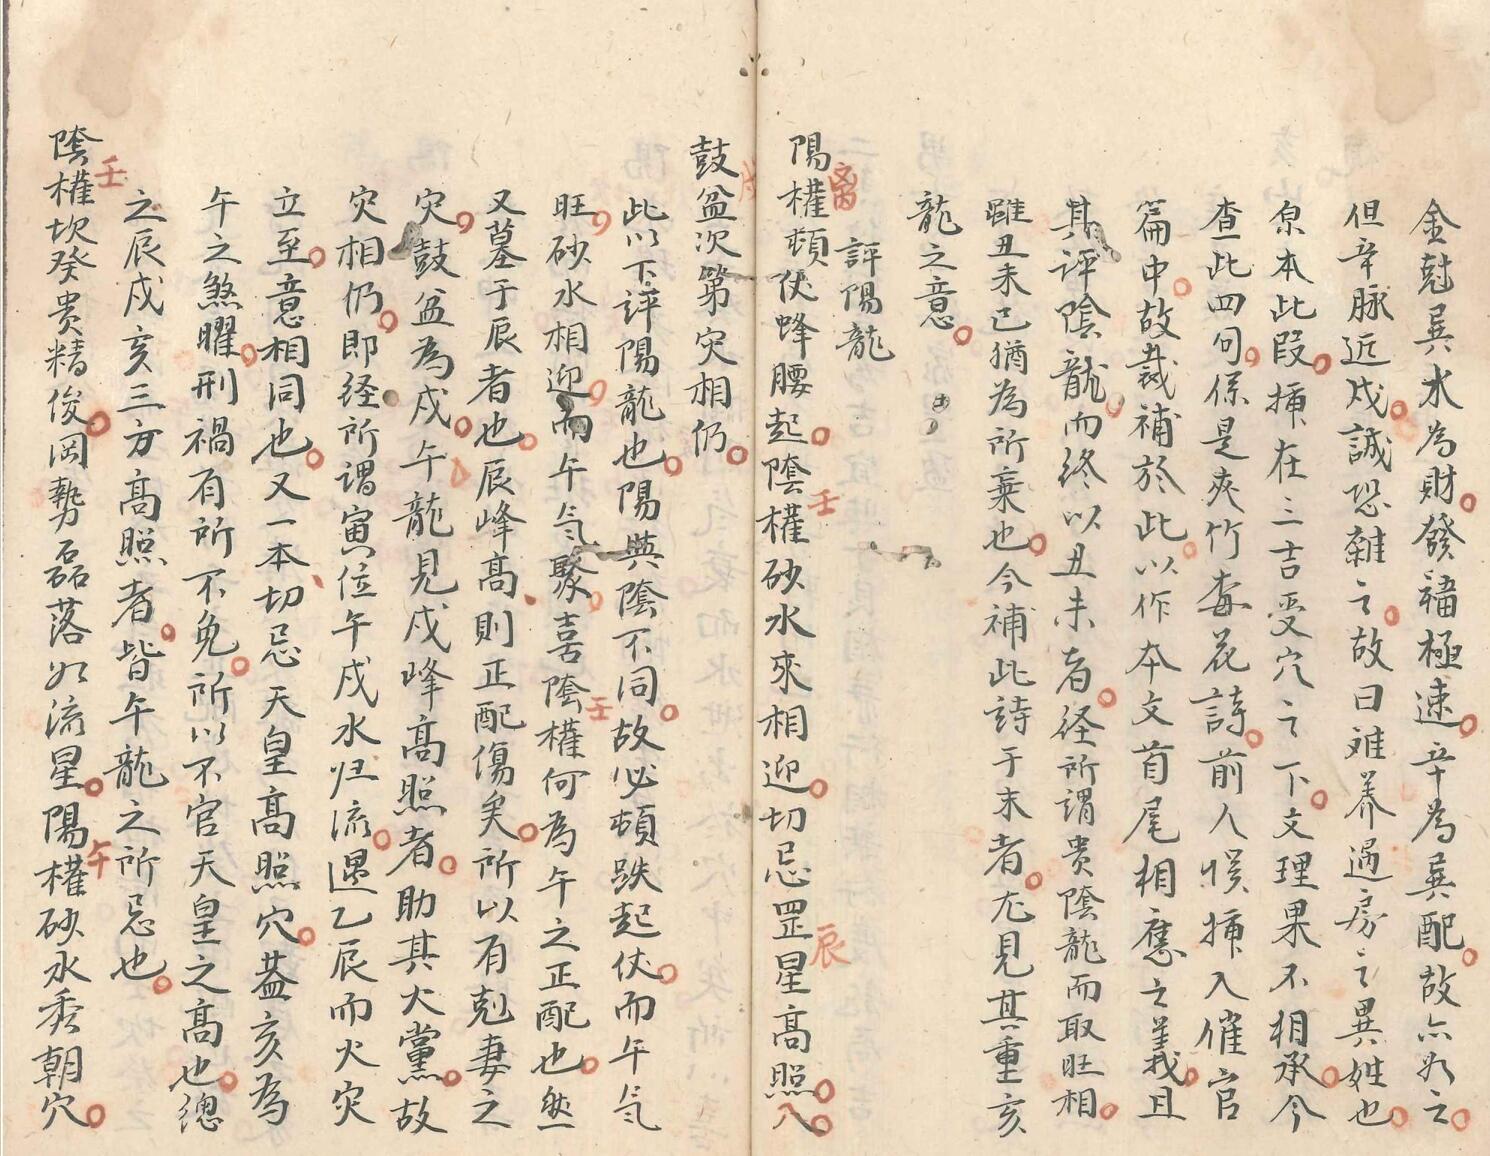 金尅巽水為財發福極速辛為巽配故亦如之
但辛脉近戌誠恐雜之故曰难养過房之異姓也
泉本此段揷在三吉受穴之下文理果不相承今
查此四句係是爽竹杳花詩前人悞揷入催官
篇中故裁補於此以作本文首尾相應之義且
其評陰龍而終以丑未者经所謂贵陰龍而取旺相
雖丑未已猶為所棄也今補此詩于末者尤見其重亥
龍之意
評陽龍
陽權頓伏蜂腰起陰權砂水來相迎切忌罡星高照八
鼓盆次第灾相仍
此以下評陽龍也陽與陰不同故必頓跌起伏而午气
旺砂水相迎而午气聚喜陰權何為午之正配也然
又墓于辰者也辰峰高則正配傷矣所以有尅妻之
灾鼓盆為戌午龍見戌峰高照者助其火黨故
灾相仍即经所謂寅位午戌水归流遇乙辰而火灾
立至意相同也又一本切忌天皇高照穴葢亥為
午之煞曜刑禍有所不免所以不官天皇之高也總
之辰戌亥三方高照者皆午龍之所忌也
陰權坎癸贵精俊岡勢磊落如流星陽權砂水秀朝穴
丙
壬
辰
戌
壬
壬
午